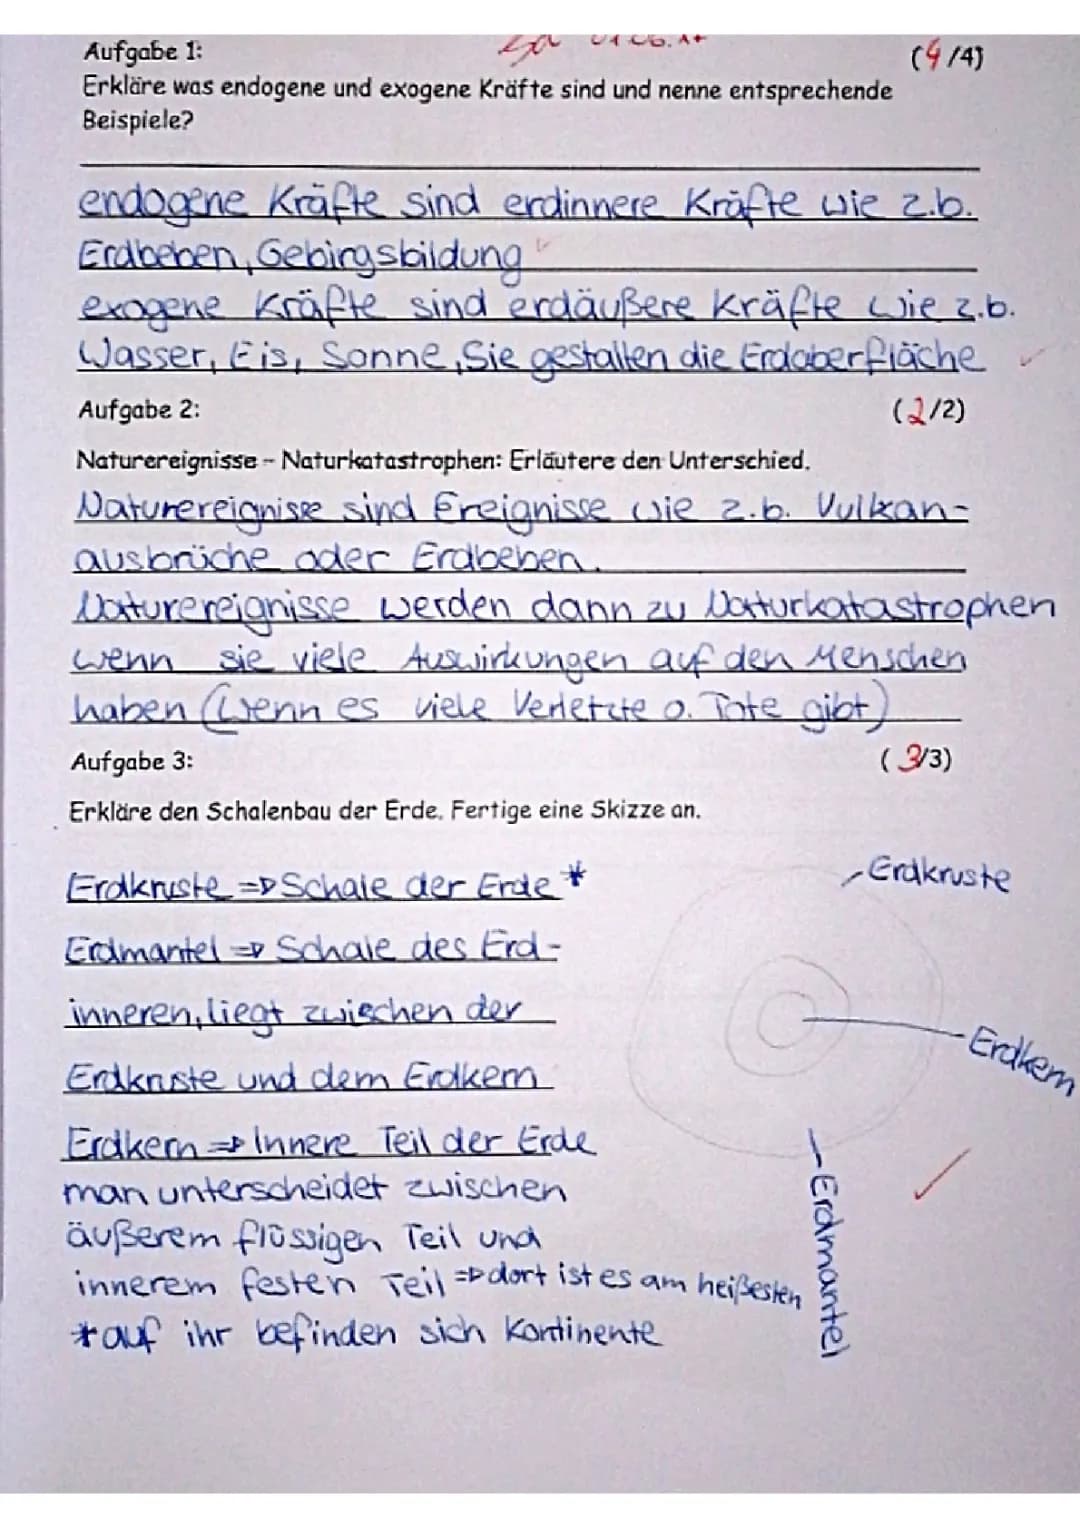 Aufgabe 1:
(4/4)
Erkläre was endogene und exogene Kräfte sind und nenne entsprechende
Beispiele?
endogene Kräfte sind erdinnere Kräfte wie z.b.
Erdbeben, Gebirgsbildung
exogene Kräfte sind erdäußere Kräfte wie z.b.
Wasser, Eis, Sonne, Sie gestalten die Erdoberfläche
Aufgabe 2:
(2/2)
Naturereignisse - Naturkatastrophen: Erläutere den Unterschied.
Naturereignisse sind Ereignisse wie z.b. Vulkan-
ausbrüche oder Erdbeben.
Naturereignisse werden dann zu Naturkatastrophen
wenn sie viele Auswirkungen auf den Menschen
haben (Wenn es viele Verletzte o. Tote gibt)
Aufgabe 3:
(3/3)
Erkläre den Schalenbau der Erde. Fertige eine Skizze an.
Erdkruste => Schale der Erde *
Erdmantel => Schale des Erd-
inneren, liegt zwischen der
Erdkruste und dem Erdkern
Erdkern => Innere Teil der Erde
man unterscheidet zwischen
äußerem flüssigen Teil und
innerem festen Teil => dort ist es am heißesten
* auf ihr befinden sich Kontinente
Erdkruste
Erdkern
Erdmantel